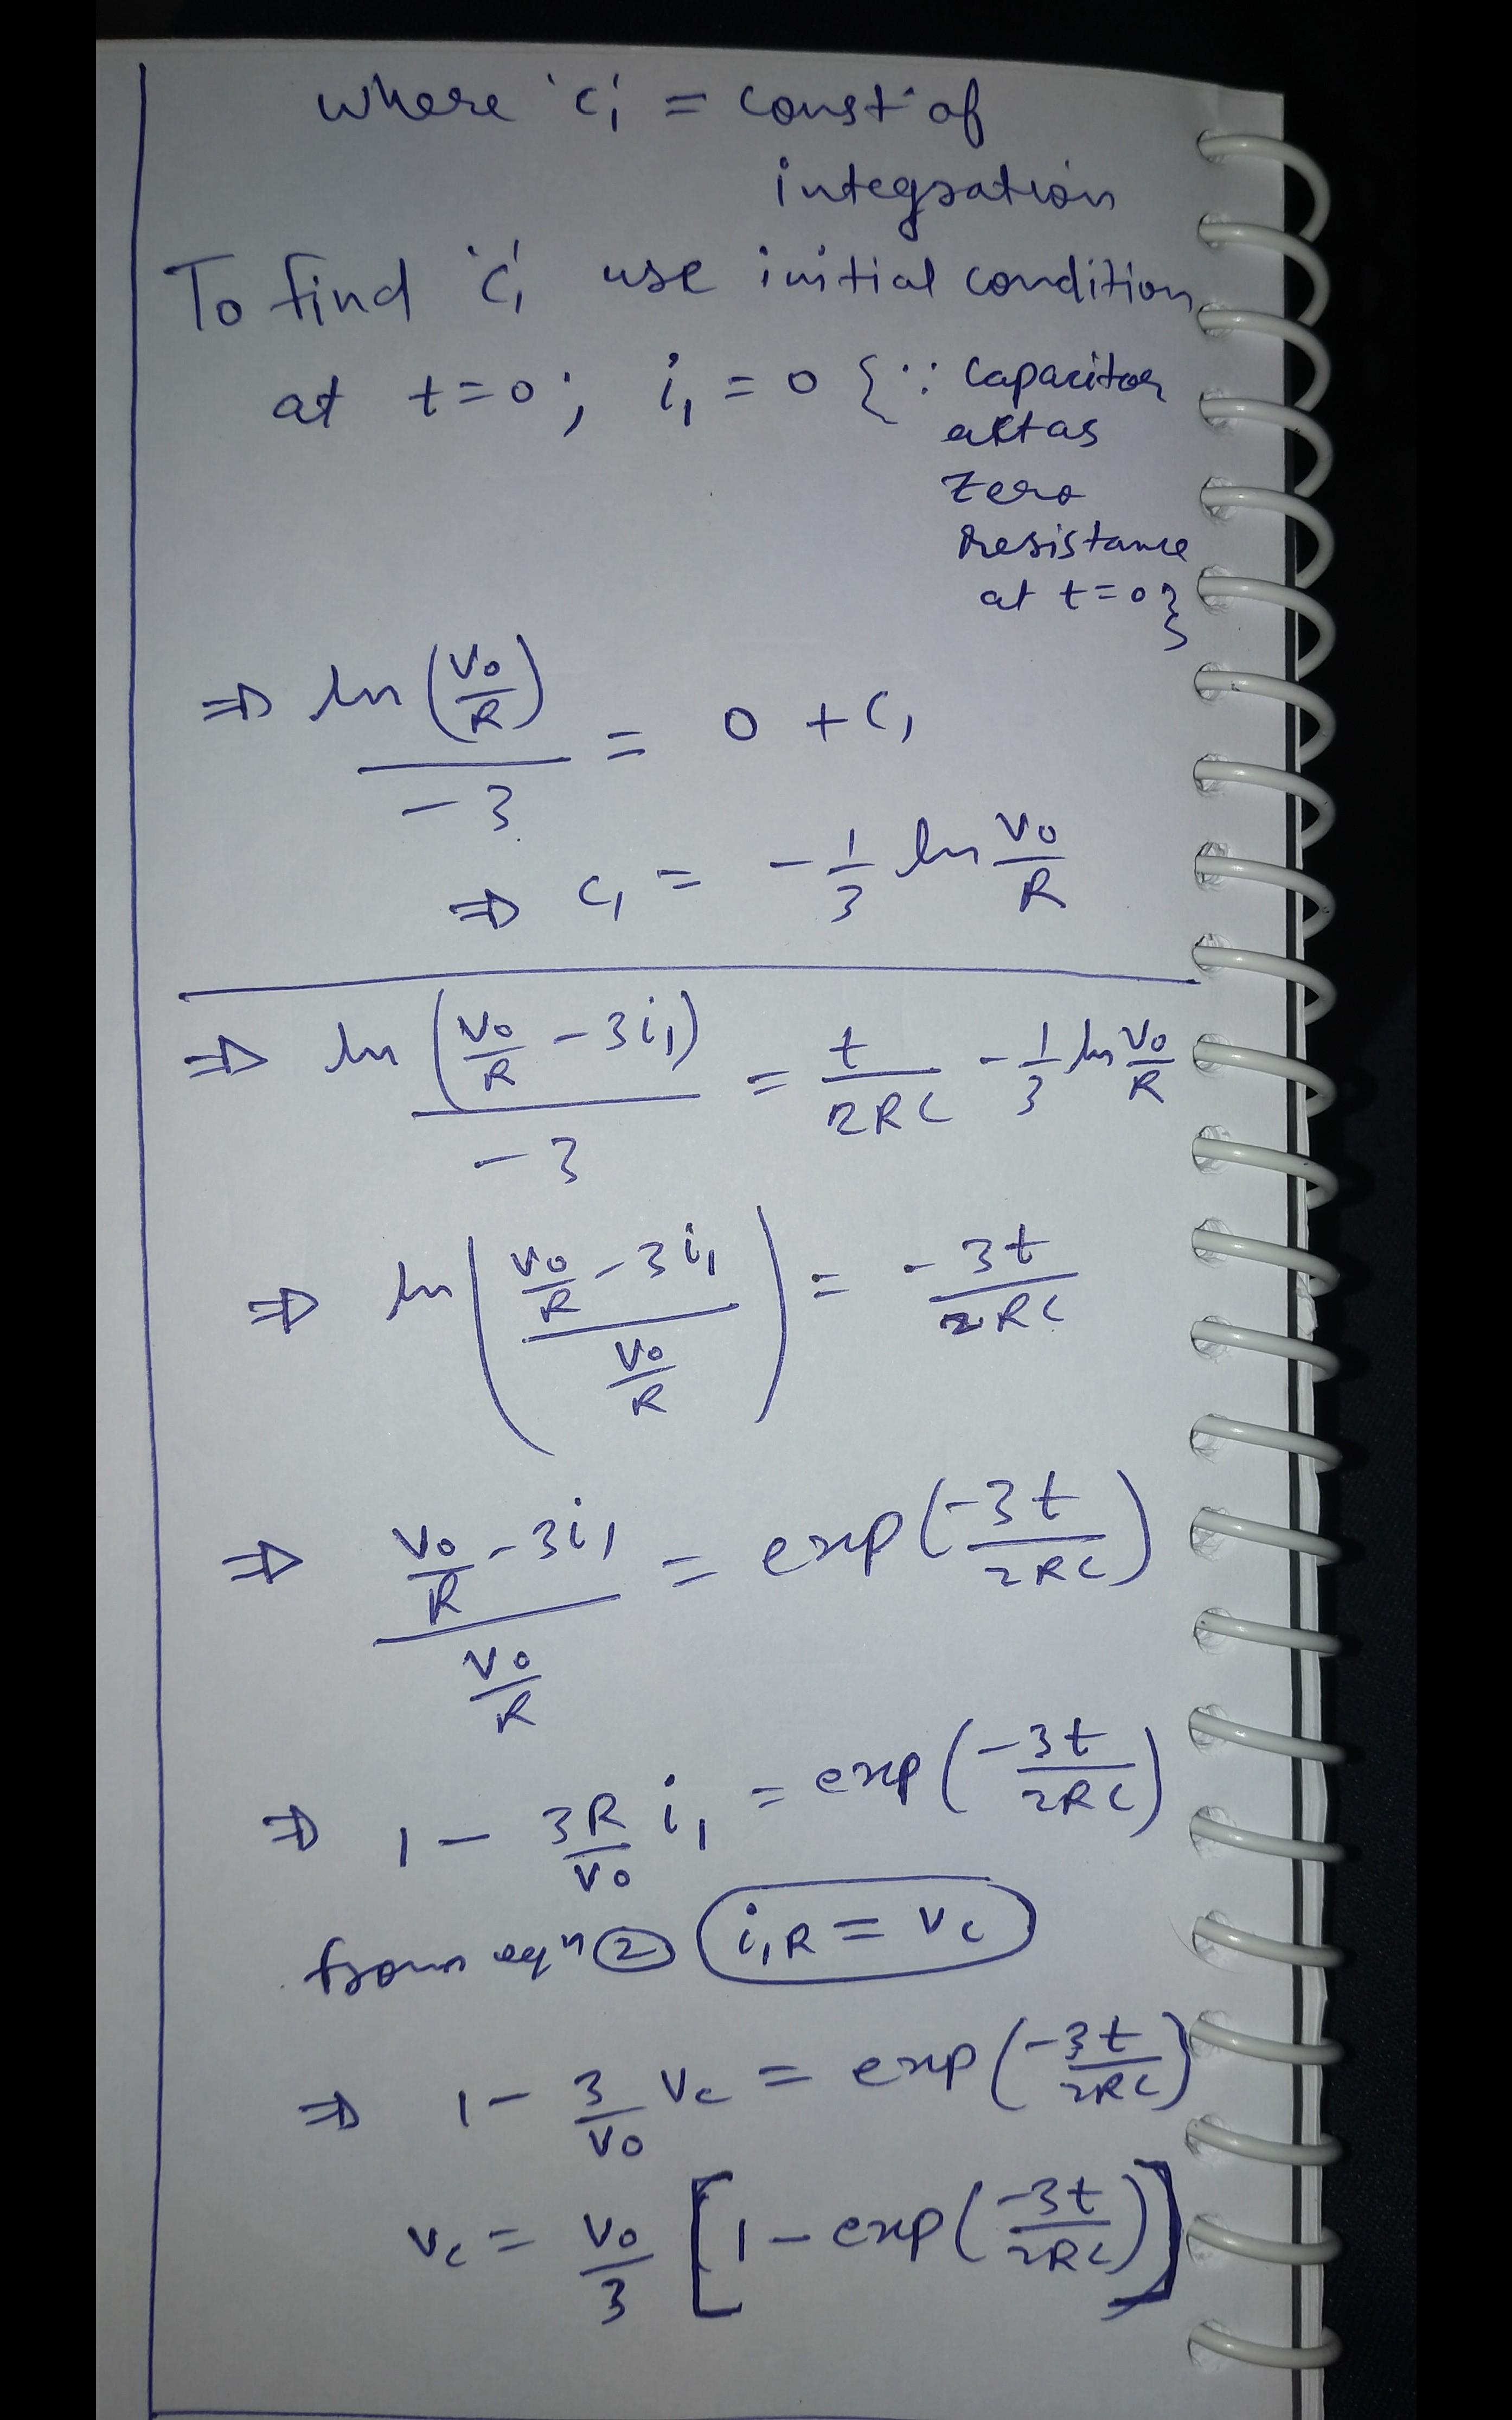 where 'c₁' = const of
integration
To find 'c₁' use initial condition
at t=0; i₁ = 0 {∵ Capacitor
act as
zero
resistance
at t=0}
⇒ ln(V₀/R)/-3 = 0 + C₁
⇒ C₁ = -1/3 ln V₀/R
⇒ ln(V₀/R - 3i₁)/-3 = t/2RC - 1/3 ln V₀/R
⇒ ln((V₀/R - 3i₁)/(V₀/R)) = -3t/2RC
⇒ (V₀/R - 3i₁)/(V₀/R) = exp(-3t/2RC)
⇒ 1 - 3R/V₀ i₁ = exp(-3t/2RC)
from eqⁿ ② i₁R = Vc
⇒ 1 - 3/V₀ Vc = exp(-3t/2RC)
Vc = V₀/3 [1 - exp(-3t/2RC)]